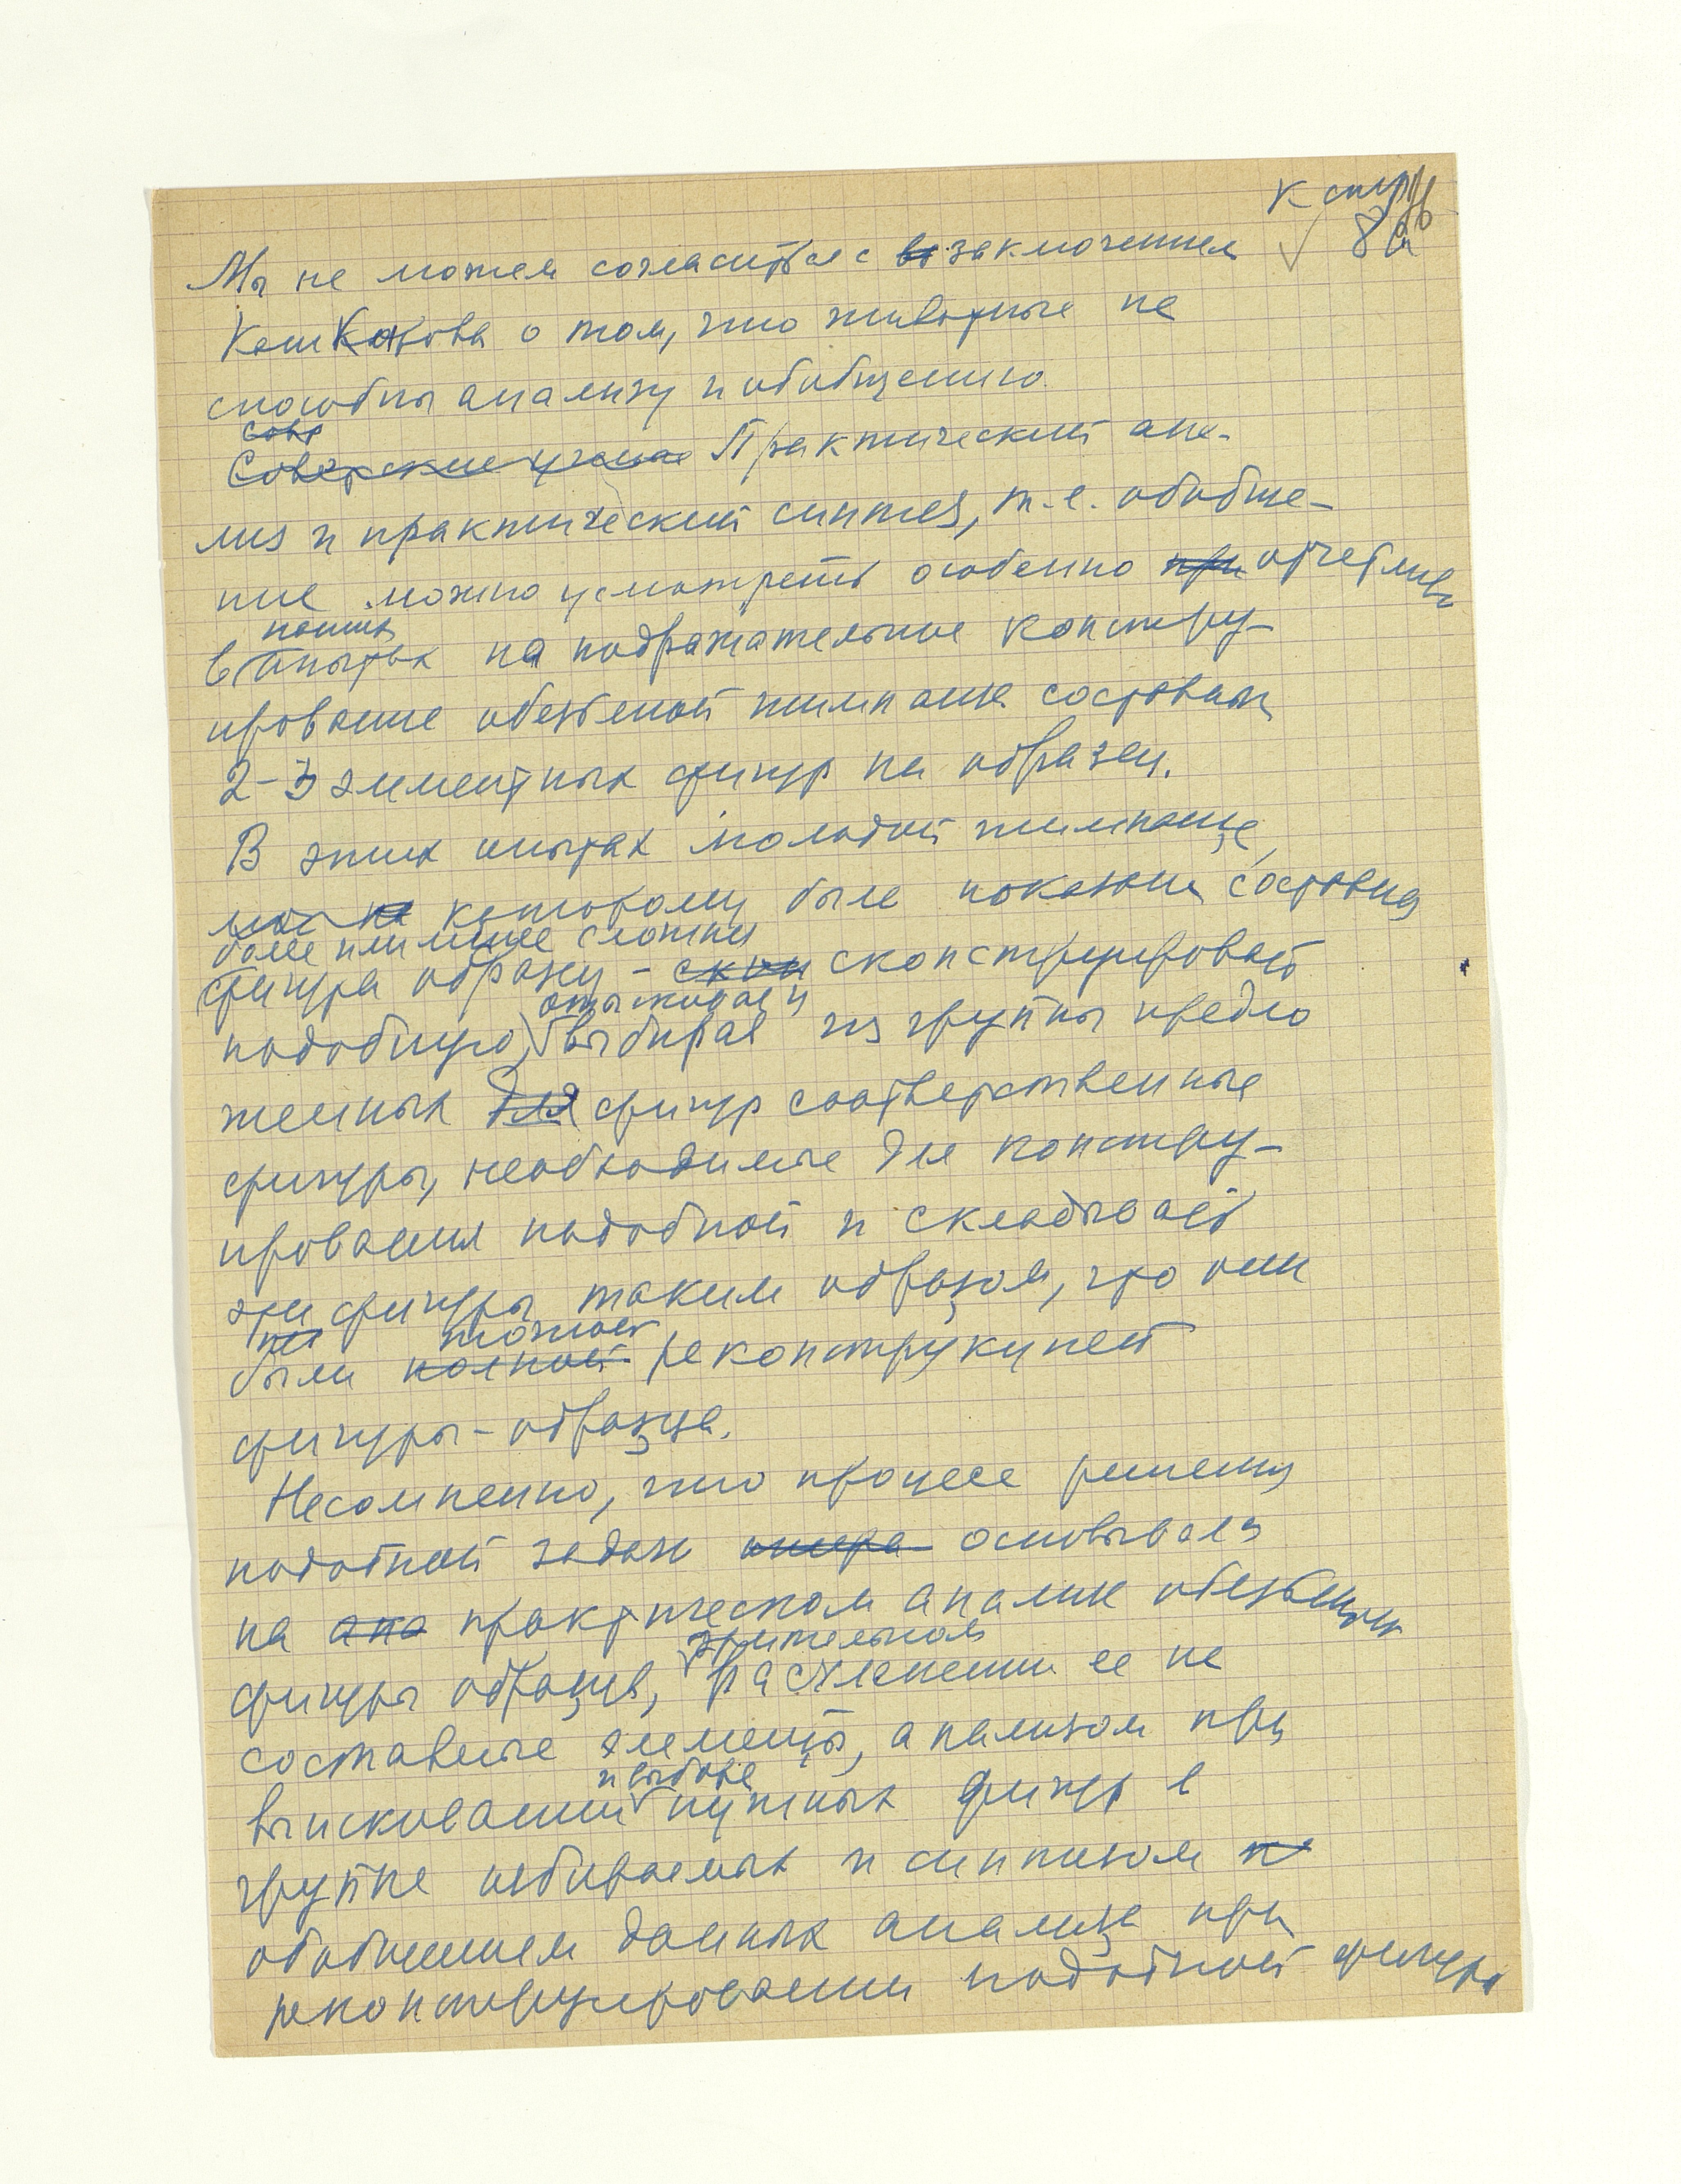 К стр
8а
Мы не можем согласиться с заключением
Кашкарова о том, что животные не
способны анализу и обобщению.
Совр
Советские ученые Практический ана-
лиз и практический синтез, т.е. обобще-
ние можно усмотреть особенно при отчетливо
наших
в опытах на подражательное констру-
ирование обезьяной шимпанзе составных
2-3 элементных фигур на образец.
В этих опытах молодой шимпанзе,
которому была показана составная
более или менее сложная
фигура образец - сконструировать
отыскивает и
подобную, выбирая из группы предло
женных для фигур соответственные
фигуры, необходимые для констру-
ирования подобной и складывает
эти фигуры таким образом, что они
точной
были полной реконструкцией
фигуры-образца.
Несомненно, что процесс решения
подобной задачи основывался
на ана практическом анализе обезьяны
зрительном
фигуры образца, расчленении ее на
составные элементы, анализом при
и выборе
выискивании нужных фигур в
группе избираемых и синтезом и
обобщением данных анализа при
реконструировании подобной фигуры